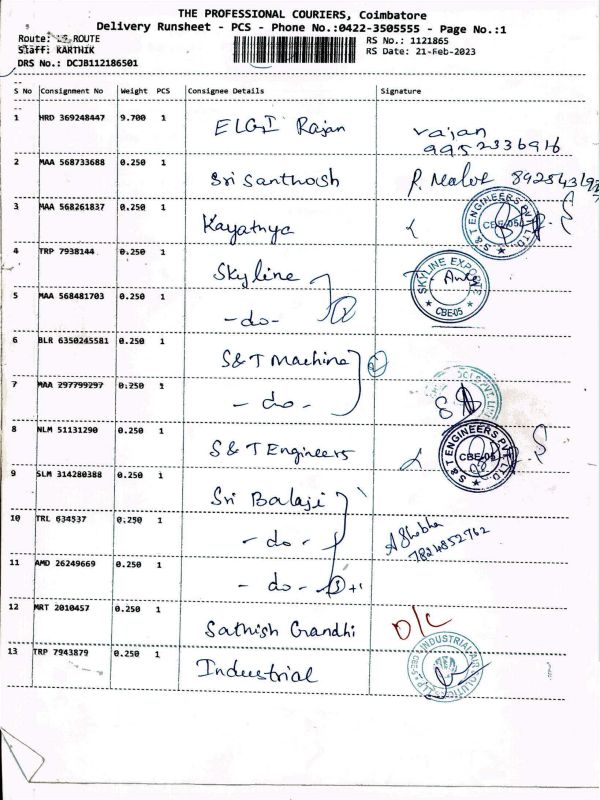 THE PROFESSIONAL COURIERS, Coimbatore
Delivery Runsheet - PCS - Phone No.:0422-3505555 - Page No.:1
Route: ROUTE RS No.: 1121865
Staff: KARTHIK RS Date: 21-Feb-2023
DRS No.: DCJB112186501
S No Consignment No Weight PCS Consignee Details Signature
1 HRD 369248447 9.700 1 ELGI Rajan rajan
9952336916
2 MAA 568733688 0.250 1 Sri Santhosh
3 MAA 568261837 0.250 1 S & T ENGINEERS PVT. LTD.
4 TRP 7938144 0.250 1 Skyline SKYLINE EXPORTS CBE-05
5 MAA 568481703 0.250 1 - do -
6 BLR 6350245581 0.250 1 S&T Machine
7 MAA 297799297 0.250 1 - do -
8 NLM 51131290 0.250 1 S & T Engineers S & T ENGINEERS PVT. LTD. CBE-05
9 SLM 314280388 0.250 1 Sri Balaji
10 TRL 634537 0.250 1 - do - 7824852762
11 AMD 26249669 0.250 1 - do - 3 + 1
12 MRT 2010457 0.250 1 Sathish Gandhi O/C
13 TRP 7943879 0.250 1 Industrial INDUSTRIAL AIR SOLUTIONS LLP